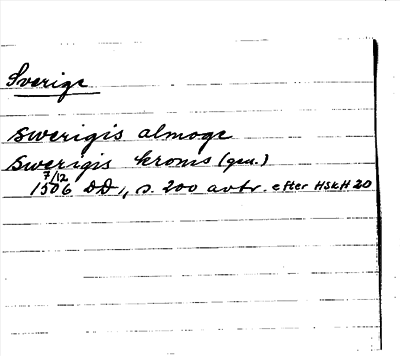 Sverige
swerigis almoge
swerigis kronis (gen.)
1506 7/12 DD, s. 200 avtr. efter HSKH 20